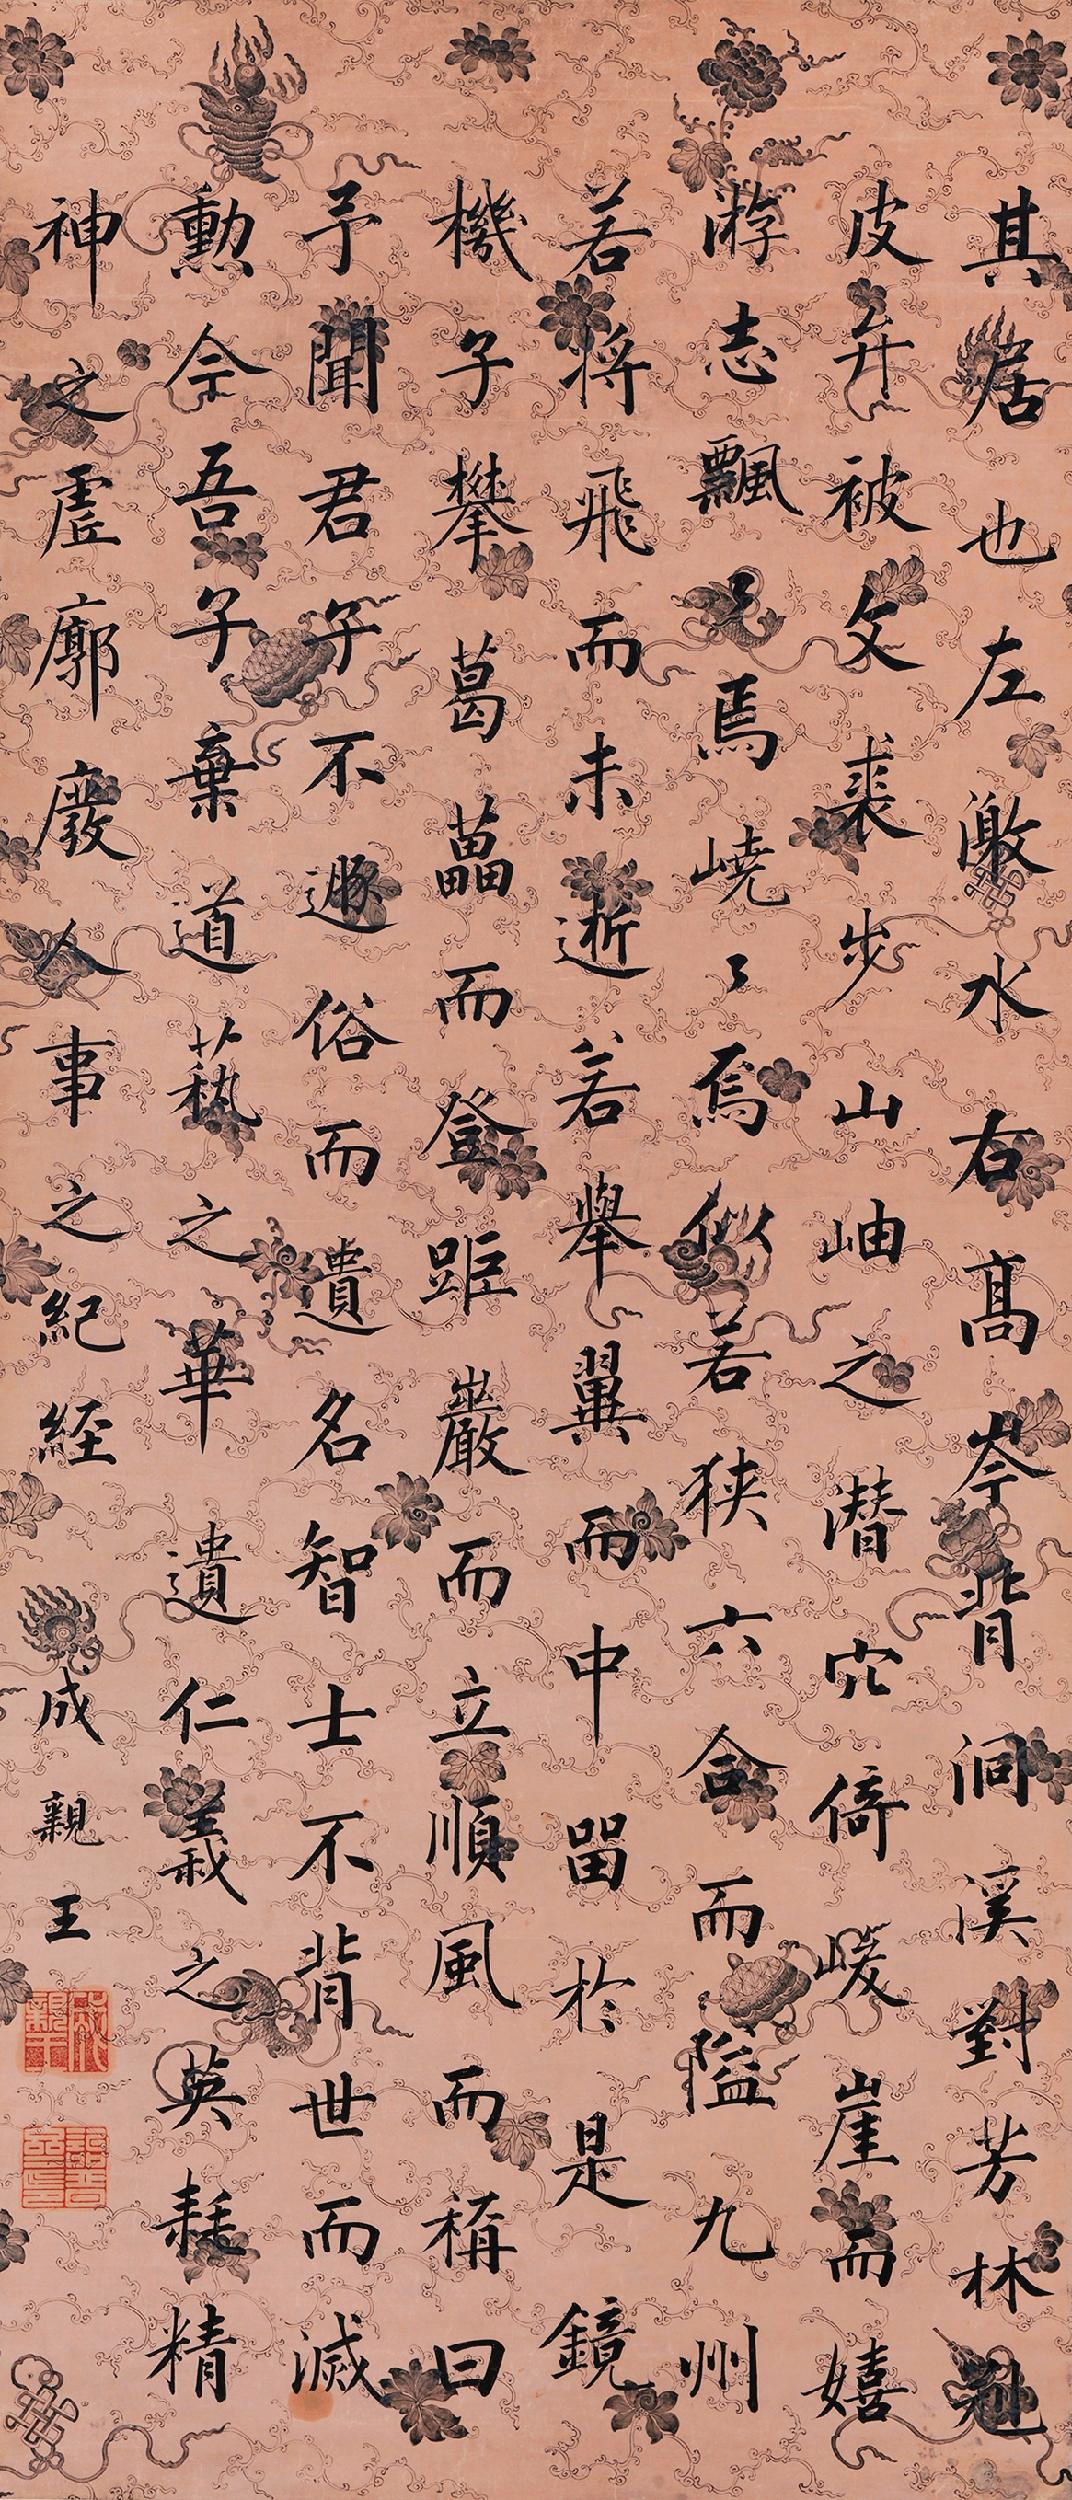 其居也左激水右高岑背洞溪對芳林
皮弁被文裘步山岫之潜穴倚峻崖而嬉
游志飄飄焉嶢嶢焉似若狹六合而隘九州
若將飛而未逝若舉翼而中留於是鏡
機子攀葛藟而登距巖而立順風而稱曰
予聞君子不遯俗而遺名智士不背世而滅
勳今吾子棄道藝之華遺仁義之英耗精
神之虛廓廢人事之紀經
成親王